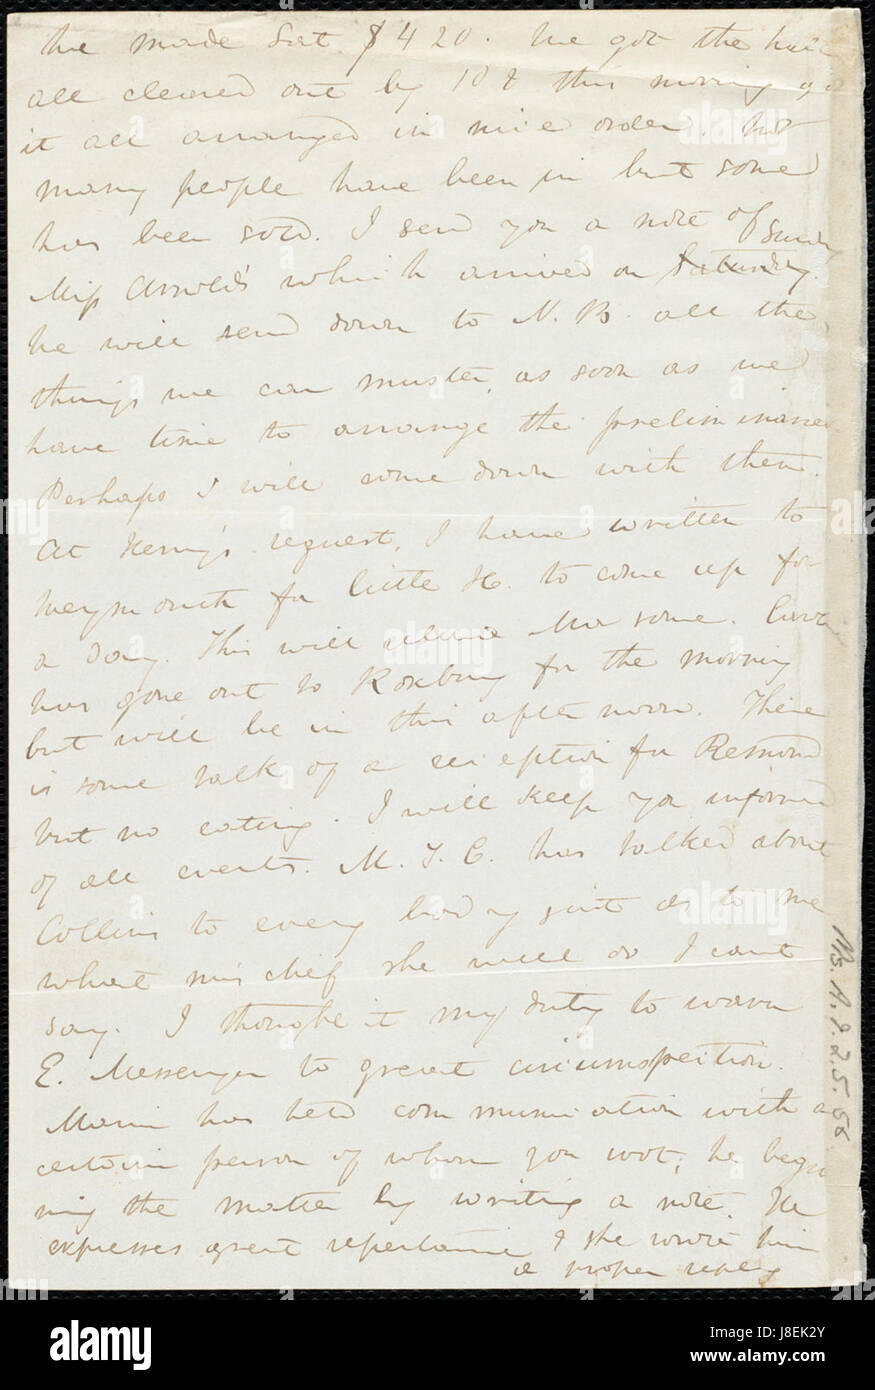 We made Sat. $420. We got the hall
all cleared out by 10 & this morning
it all arranged in nice order. Not
many people have been in but some
has been sold. I send you a note of
Miss Arnold's which arrived on Saturday. Sunday
he will send down to N.B. all the
things we can muster, as soon as we
have time to arrange the preliminaries
Perhaps I will come down with them.
At Henry's request, I have written to
Weymouth for little H. to come up for
a day. This will relieve Ma some.
has gone out to Roxbury for the morning
but will be in this afternoon. There
is some talk of a reception for Remond
but no eating. I will keep you informed
of all events. M. J. C. has talked about
Collins to every body just as to me
what mischief she will do I cant
say. I thought it my duty to warn
E. Messenger to great circumspection.
Maria has held communication with a
certain person of whom you wot; he begin
ning the matter by writing a note. He
expresses great repentance & she wrote him
a proper reply
Ms. A.9.2.5.56
alamy
Image ID: J8EK2Y
www.alamy.com